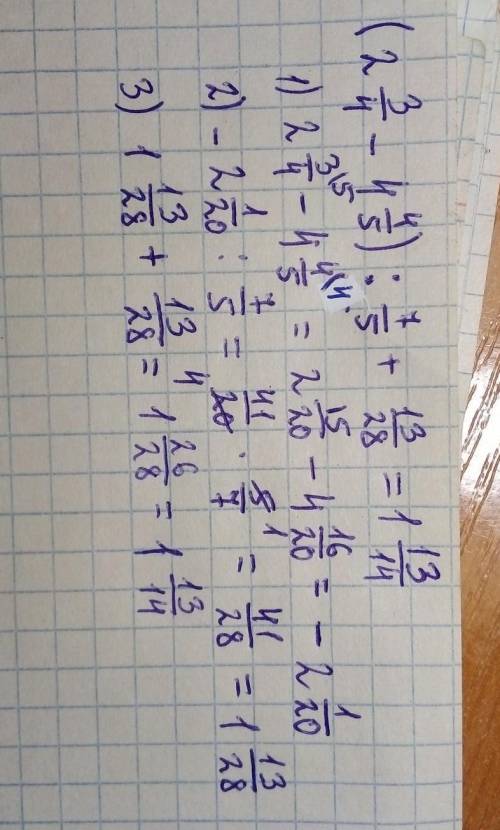 (2 3/4 - 4 4/5) : 7/5 + 13/28 = 1 13/14
1) 2 3\5/4 - 4 4\4/5 = 2 15/20 - 4 16/20 = - 2 1/20
2) - 2 1/20 : 7/5 = 41/20 4 · 5 1/7 = 41/28 = 1 13/28
3) 1 13/28 + 13/28 = 1 26/28 = 1 13/14